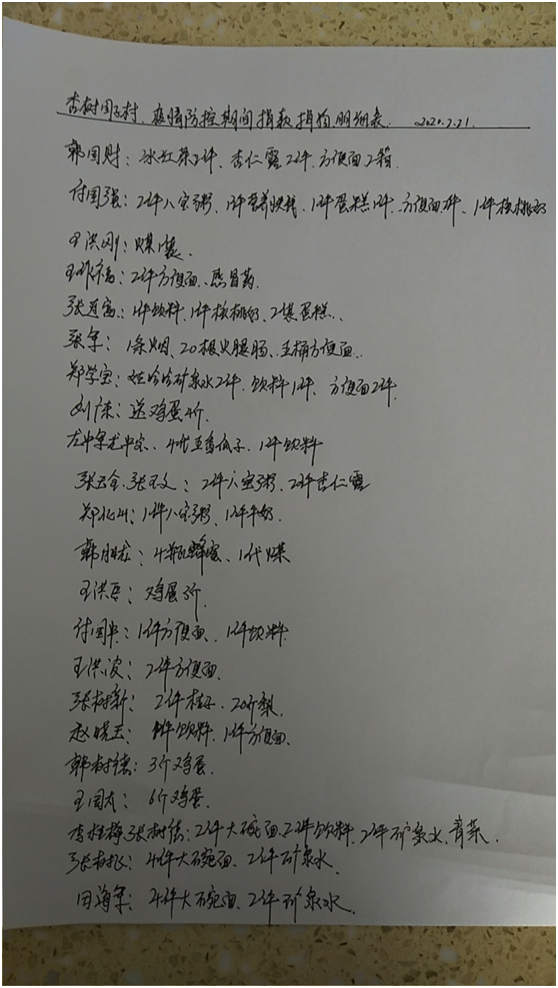 杏树园子村、疫情防控期间捐款捐物明细表. 2020.2.21.
韩国财：冰红茶2件、杏仁露2件.方便面2箱.
付国强：2件八宝粥、1件营养快线、1件蛋糕、方便面1件、1件核桃奶
王洪刚：煤1袋.
王作福：2件方便面、感冒药.
张连富：1件饮料、1件核桃奶、2袋蛋糕.
张军：1条烟、20根火腿肠、五桶方便面.
郑学宝：娃哈哈矿泉水2件.饮料1件、方便面2件.
刘广东：送鸡蛋4斤.
2件豆香瓜子、1件饮料
张玉全、张玉文：2件八宝粥、2件杏仁露
郑化山：1件八宝粥、1件牛奶.
韩成：4瓶蜂蜜、1代煤
王洪臣：鸡蛋3斤.
付国忠：1件方便面、1件饮料
王洪波：2件方便面.
张树新：2件桔子、20个梨.
赵晓玉：1件饮料、1件方便面.
韩树德：3斤鸡蛋.
王国太：6斤鸡蛋.
李桂梅、张树信：2件大碗面、2件饮料、2件矿泉水、青菜.
张树人：4件大碗面、2件矿泉水.
田海军：4件大碗面、2件矿泉水.